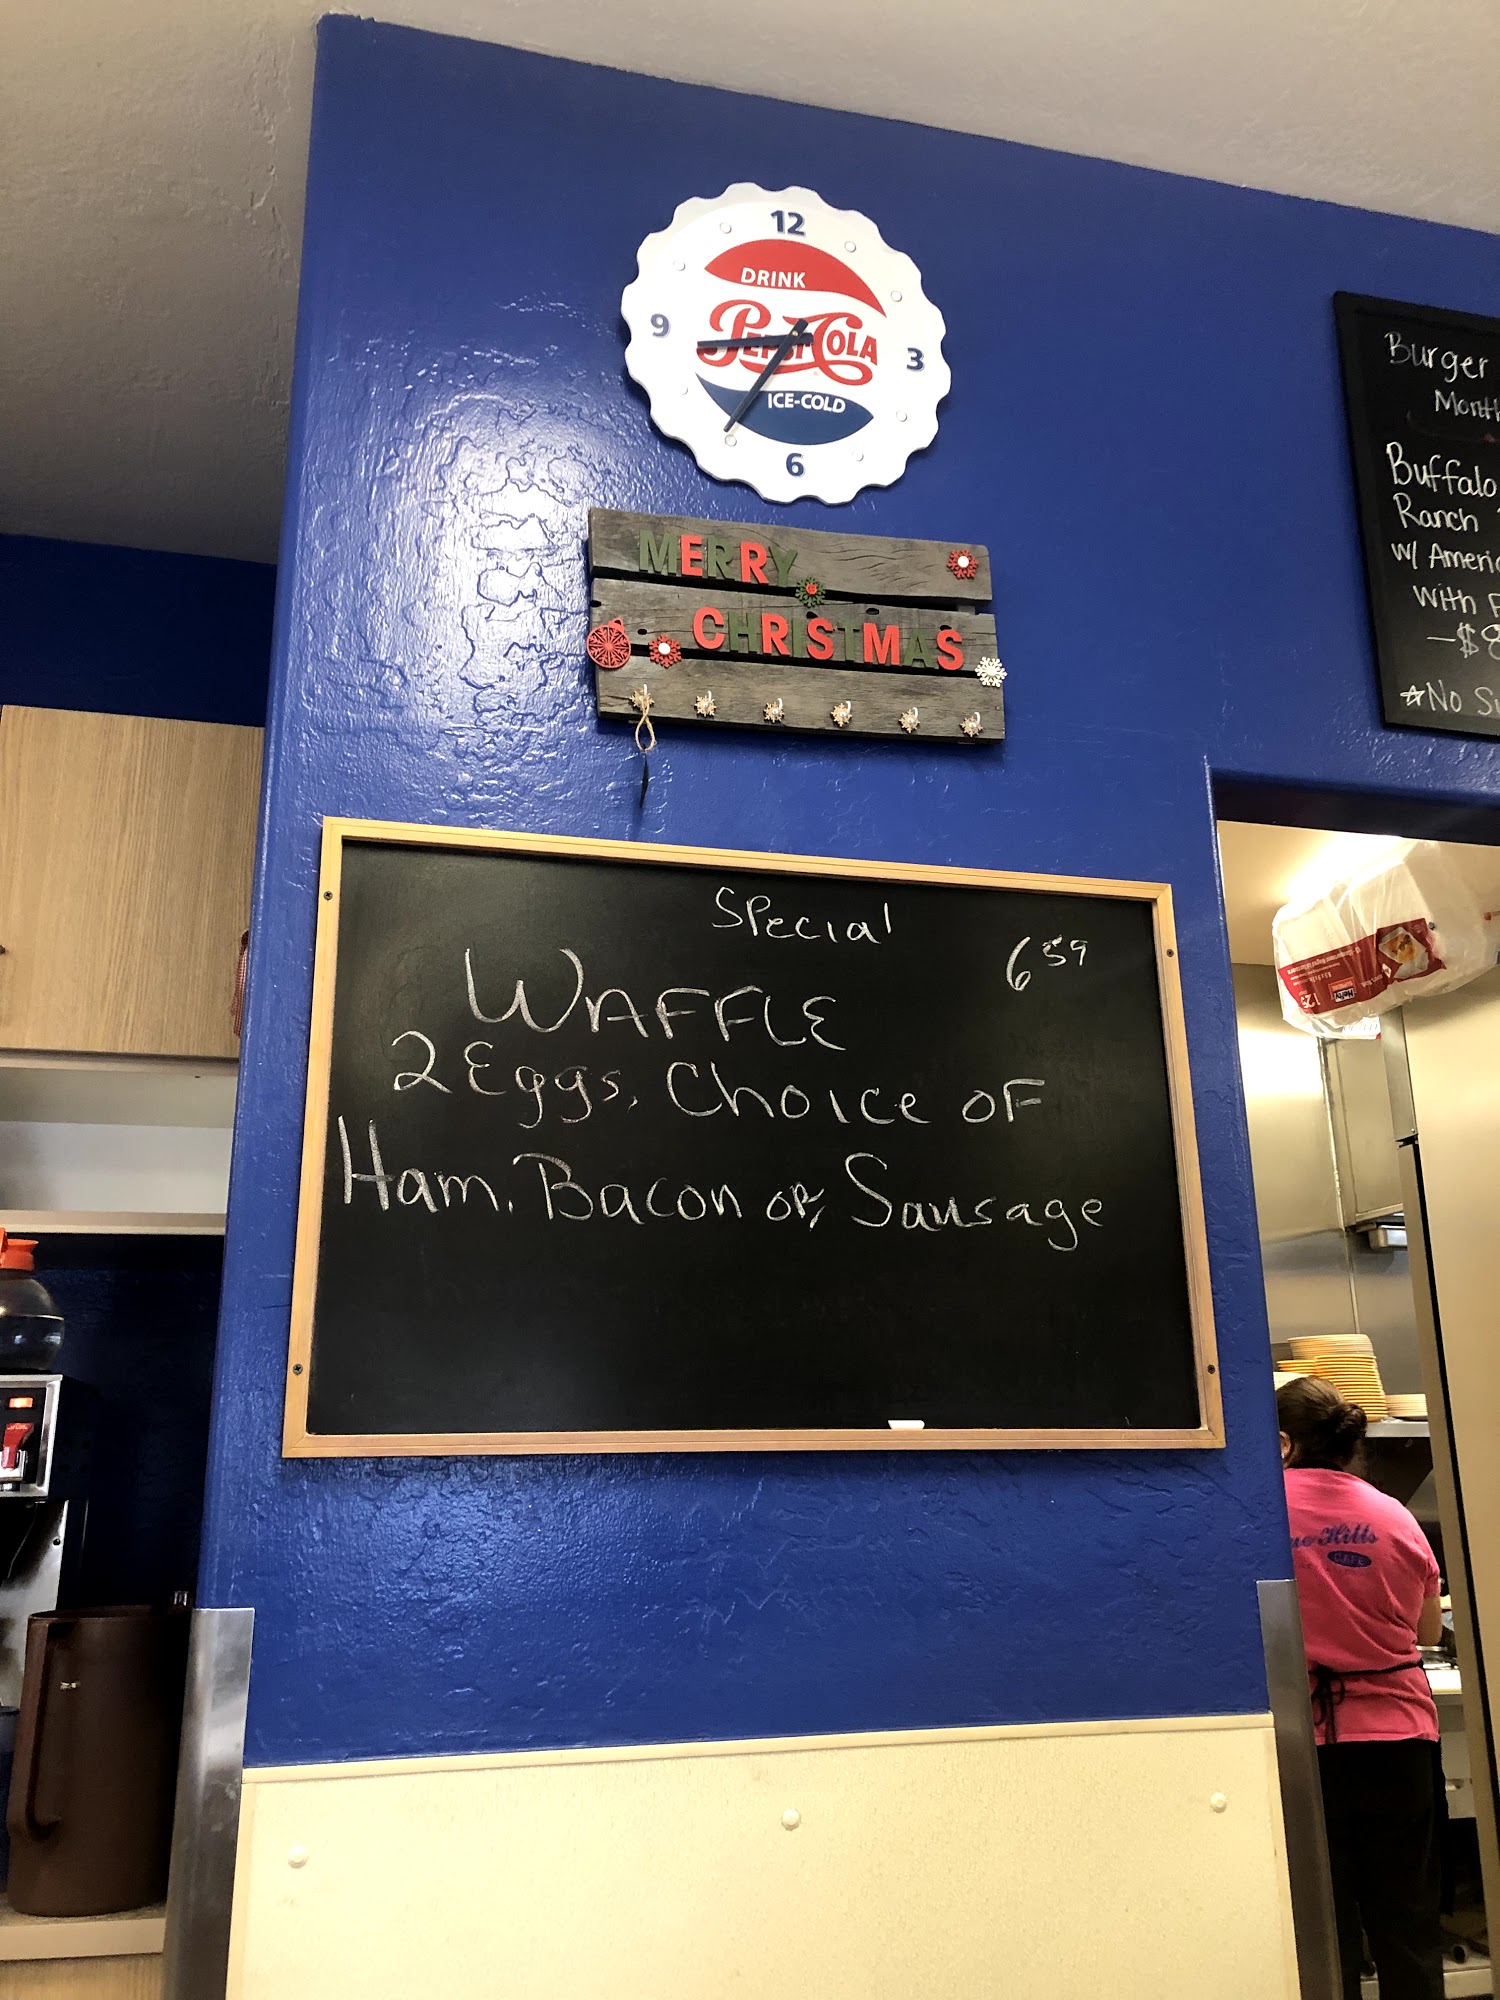 12
DRINK
9
PEPSI COLA
3
ICE-COLD
6
MERRY
CHRISTMAS
Burger
Buffalo
Ranch
w/
with
-$8
*No
Special
6 59
WAFFLE
2 Eggs, Choice OF
Ham, Bacon or, Sausage
Hefty
Hills
CAFE